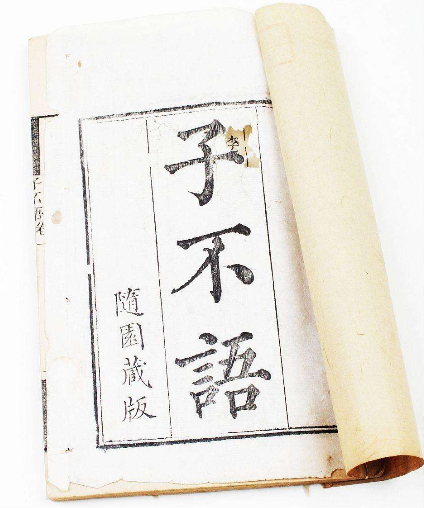 子不語
隨園蔵版